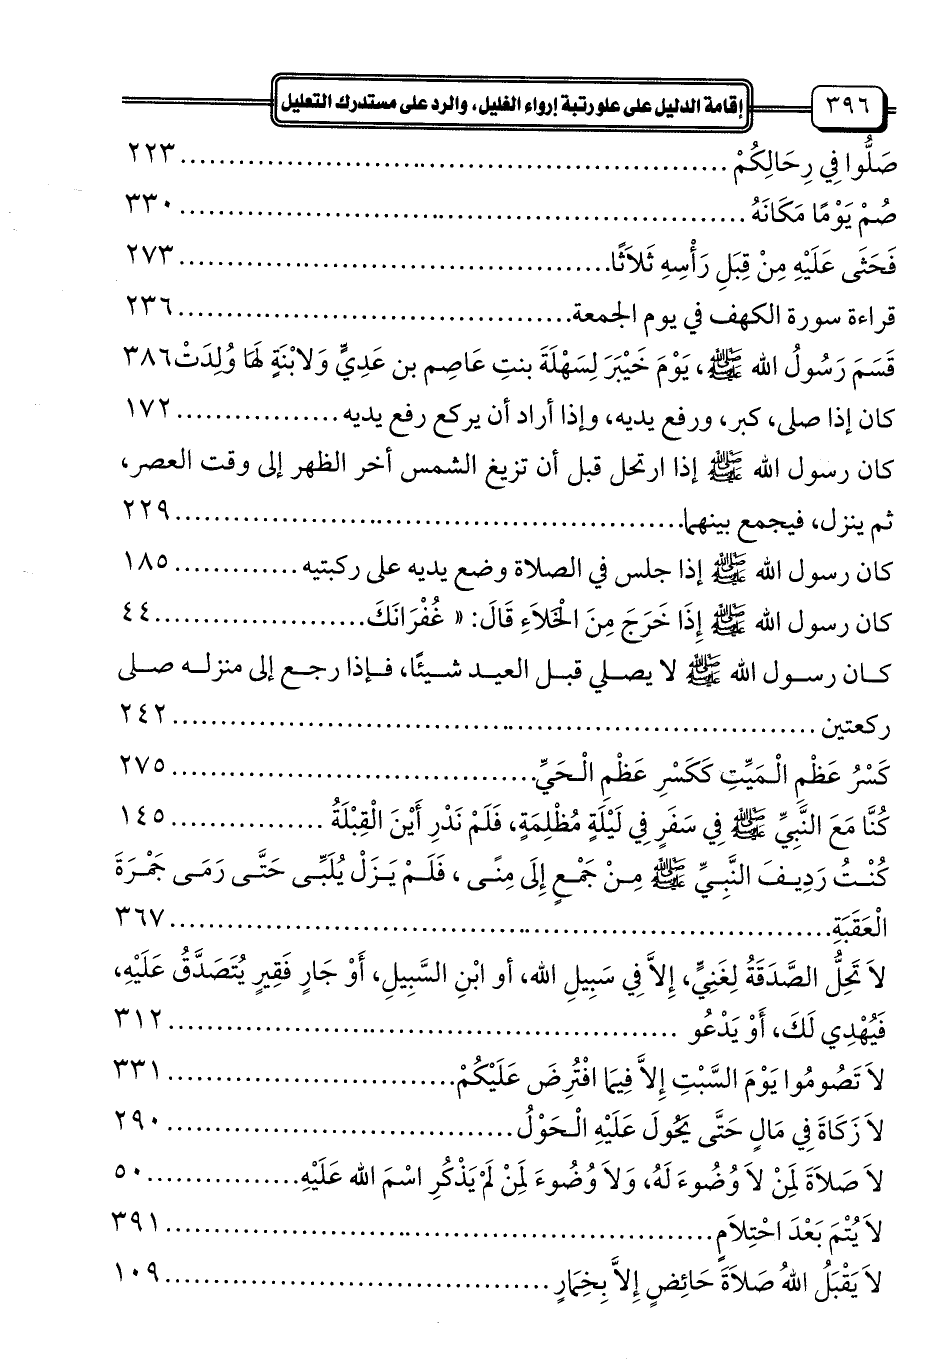 ٣٩٦
إقامة الدليل على علو رتبة إرواء الغليل، والرد على مستدرك التعليل
صَلُّوا فِي رِحَالِكُمْ ........ ٢٢٣
صُمْ يَوْمًا مَكَانَهُ ........ ٣٣٠
فَحَثَى عَلَيْهِ مِنْ قِبَلِ رَأْسِهِ ثَلاَثًا ........ ٢٧٣
قراءة سورة الكهف في يوم الجمعة ........ ٢٣٦
قَسَمَ رَسُولُ الله ﷺ، يَوْمَ خَيْبَرَ لِسَهْلَةَ بنتِ عَاصِم بن عَدِيٍّ وَلابْنَةٍ لَهَا وُلِدَتْ ٣٨٦
كان إذا صلى، كبر، ورفع يديه، وإذا أراد أن يركع رفع يديه ........ ١٧٢
كان رسول الله ﷺ إذا ارتحل قبل أن تزيغ الشمس أخر الظهر إلى وقت العصر،
ثم ينزل، فيجمع بينهما ........ ٢٢٩
كان رسول الله ﷺ إذا جلس في الصلاة وضع يديه على ركبتيه ........ ١٨٥
كان رسول الله ﷺ إِذَا خَرَجَ مِنَ الْخَلاَءِ قَالَ: « غُفْرَانَكَ ........ ٤٤
كان رسول الله ﷺ لا يصلي قبل العيد شيئًا، فإذا رجع إلى منزله صلى
ركعتين ........ ٢٤٢
كَسْرُ عَظْمِ الْمَيِّتِ كَكَسْرِ عَظْمِ الْحَيِّ ........ ٢٧٥
كُنَّا مَعَ النَّبِيِّ ﷺ فِي سَفَرٍ فِي لَيْلَةٍ مُظْلِمَةٍ، فَلَمْ نَدْرِ أَيْنَ الْقِبْلَةُ ........ ١٤٥
كُنْتُ رَدِيفَ النَّبِيِّ ﷺ مِنْ جَمْعٍ إِلَى مِنًى ، فَلَمْ يَزَلْ يُلَبِّى حَتَّى رَمَى جَمْرَةَ
الْعَقَبَةِ ........ ٣٦٧
لاَ تَحِلُّ الصَّدَقَةُ لِغَنِيٍّ، إِلاَّ فِي سَبِيلِ الله، أو ابْنِ السَّبِيلِ، أَوْ جَارٍ فَقِيرٍ يُتَصَدَّقُ عَلَيْهِ،
فَيُهْدِي لَكَ، أَوْ يَدْعُو ........ ٣١٢
لاَ تَصُومُوا يَوْمَ السَّبْتِ إِلاَّ فِيمَا افْتُرِضَ عَلَيْكُمْ ........ ٣٣١
لاَ زَكَاةَ فِي مَالٍ حَتَّى يَحُولَ عَلَيْهِ الْحَوْلُ ........ ٢٩٠
لاَ صَلاَةَ لِمَنْ لاَ وُضُوءَ لَهُ، وَلاَ وُضُوءَ لِمَنْ لَمْ يَذْكُرِ اسْمَ الله عَلَيْهِ ........ ٥٠
لاَ يُتْمَ بَعْدَ احْتِلاَمٍ ........ ٣٩١
لاَ يَقْبَلُ اللهُ صَلاَةَ حَائِضٍ إِلاَّ بِخِمَارٍ ........ ١٠٩